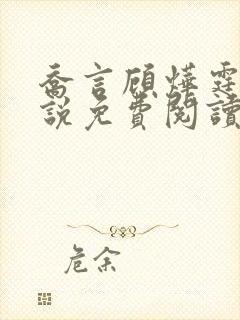 喬言顧燁霆
說免費閱讀
危余